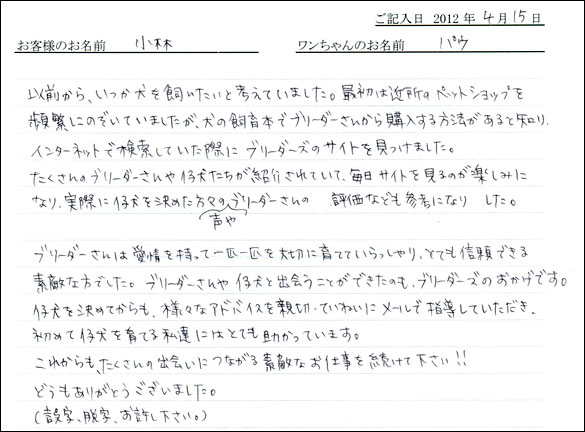 ご記入日 2012 年 4 月 15 日
お客様のお名前 小林 ワンちゃんのお名前 パウ
以前から、いつか犬を飼いたいと考えていました。最初は近所のペットショップを
頻繁にのぞいていましたが、犬の飼育本でブリーダーさんから購入する方法があると知り、
インターネットで検索していた際にブリーダーズのサイトを見つけました。
たくさんのブリーダーさんや仔犬たちが紹介されていて、毎日サイトを見るのが楽しみに
なり、実際に仔犬を決めた方々のブリーダーさんの 評価なども参考になり した。
声や
ブリーダーさんは愛情を持って一匹一匹を大切に育てていらっしゃり、とても信頼できる
素敵な方でした。ブリーダーさんや仔犬と出会うことができたのも、ブリーダーズのおかげです。
仔犬を決めてからも、様々なアドバイスを親切、ていねいにメールで指導していただき、
初めて仔犬を育てる私達にはとても助かっています。
これからも、たくさんの出会いにつながる素敵なお仕事を続けて下さい!!
どうもありがとうございました。
(誤字、脱字、お許し下さい。)